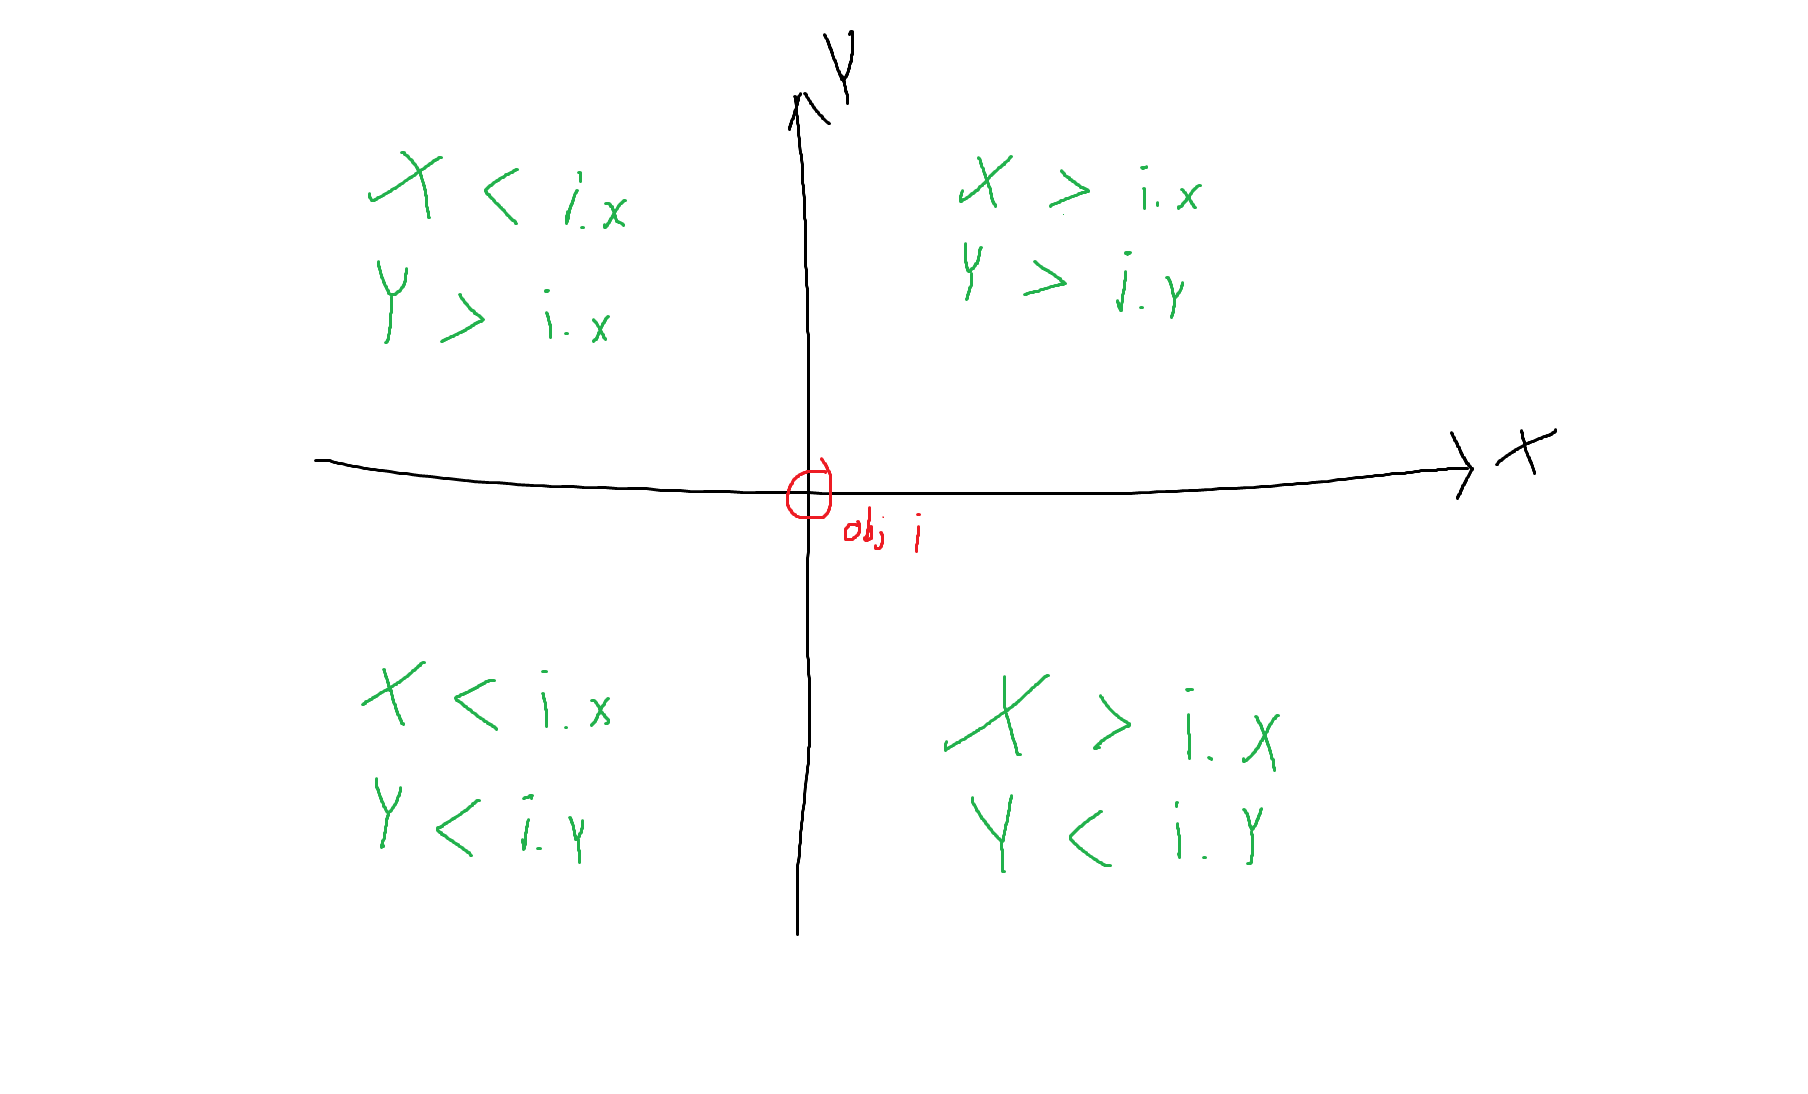 Y
X < i.x
Y > i.x
X > i.x
Y > i.y
X
obj i
X < i.x
Y < i.y
X > i.x
Y < i.y